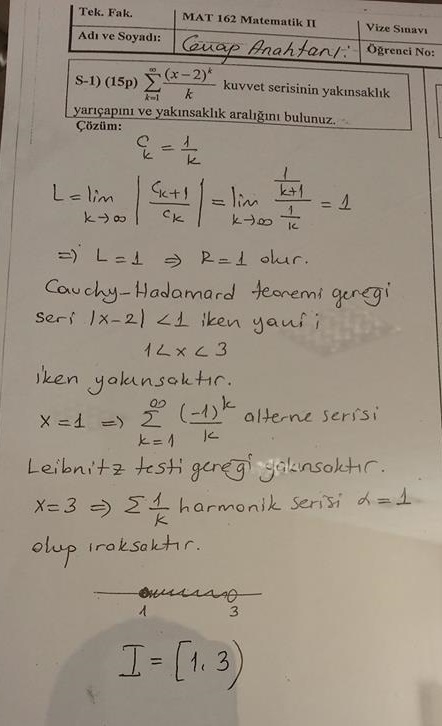 Tek. Fak.
MAT 162 Matematik II
Vize Sınavı
Adı ve Soyadı:
Cevap Anahtarı:
Öğrenci No:
S-1) (15p) ∑_{k=1}^{∞} (x-2)^k / k kuvvet serisinin yakınsaklık
yarıçapını ve yakınsaklık aralığını bulunuz.
Çözüm:
C_k = 1/k
L = lim_{k→∞} |C_{k+1} / C_k| = lim_{k→∞} (1/(k+1)) / (1/k) = 1
⇒ L = 1 ⇒ R = 1 olur.
Cauchy-Hadamard teoremi gereği
seri |x-2| < 1 iken yani
1 < x < 3
iken yakınsaktır.
x = 1 ⇒ ∑_{k=1}^{∞} (-1)^k / k alterne serisi
Leibnitz testi gereği yakınsaktır.
x = 3 ⇒ ∑ 1/k harmonik serisi α = 1
olup ıraksaktır.
1 3
I = [1, 3)